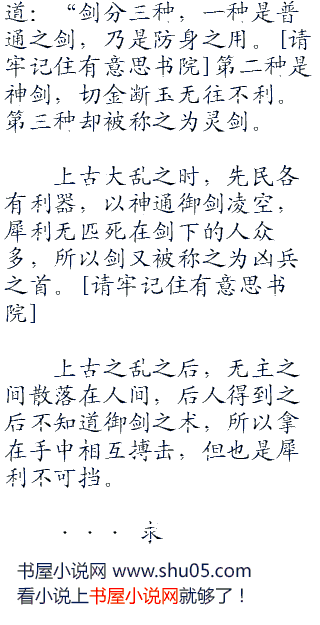 道：“剑分三种，一种是普
通之剑，乃是防身之用。[请
牢记住有意思书院]第二种是
神剑，切金断玉无往不利。
第三种却被称之为灵剑。
上古大乱之时，先民各
有利器，以神通御剑凌空，
犀利无匹死在剑下的人众
多，所以剑又被称之为凶兵
之首。[请牢记住有意思书
院]
上古之乱之后，无主之
间散落在人间，后人得到之
后不知道御剑之术，所以拿
在手中相互搏击，但也是犀
利不可挡。
···
书屋小说网 www.shu05.com
看小说上书屋小说网就够了！